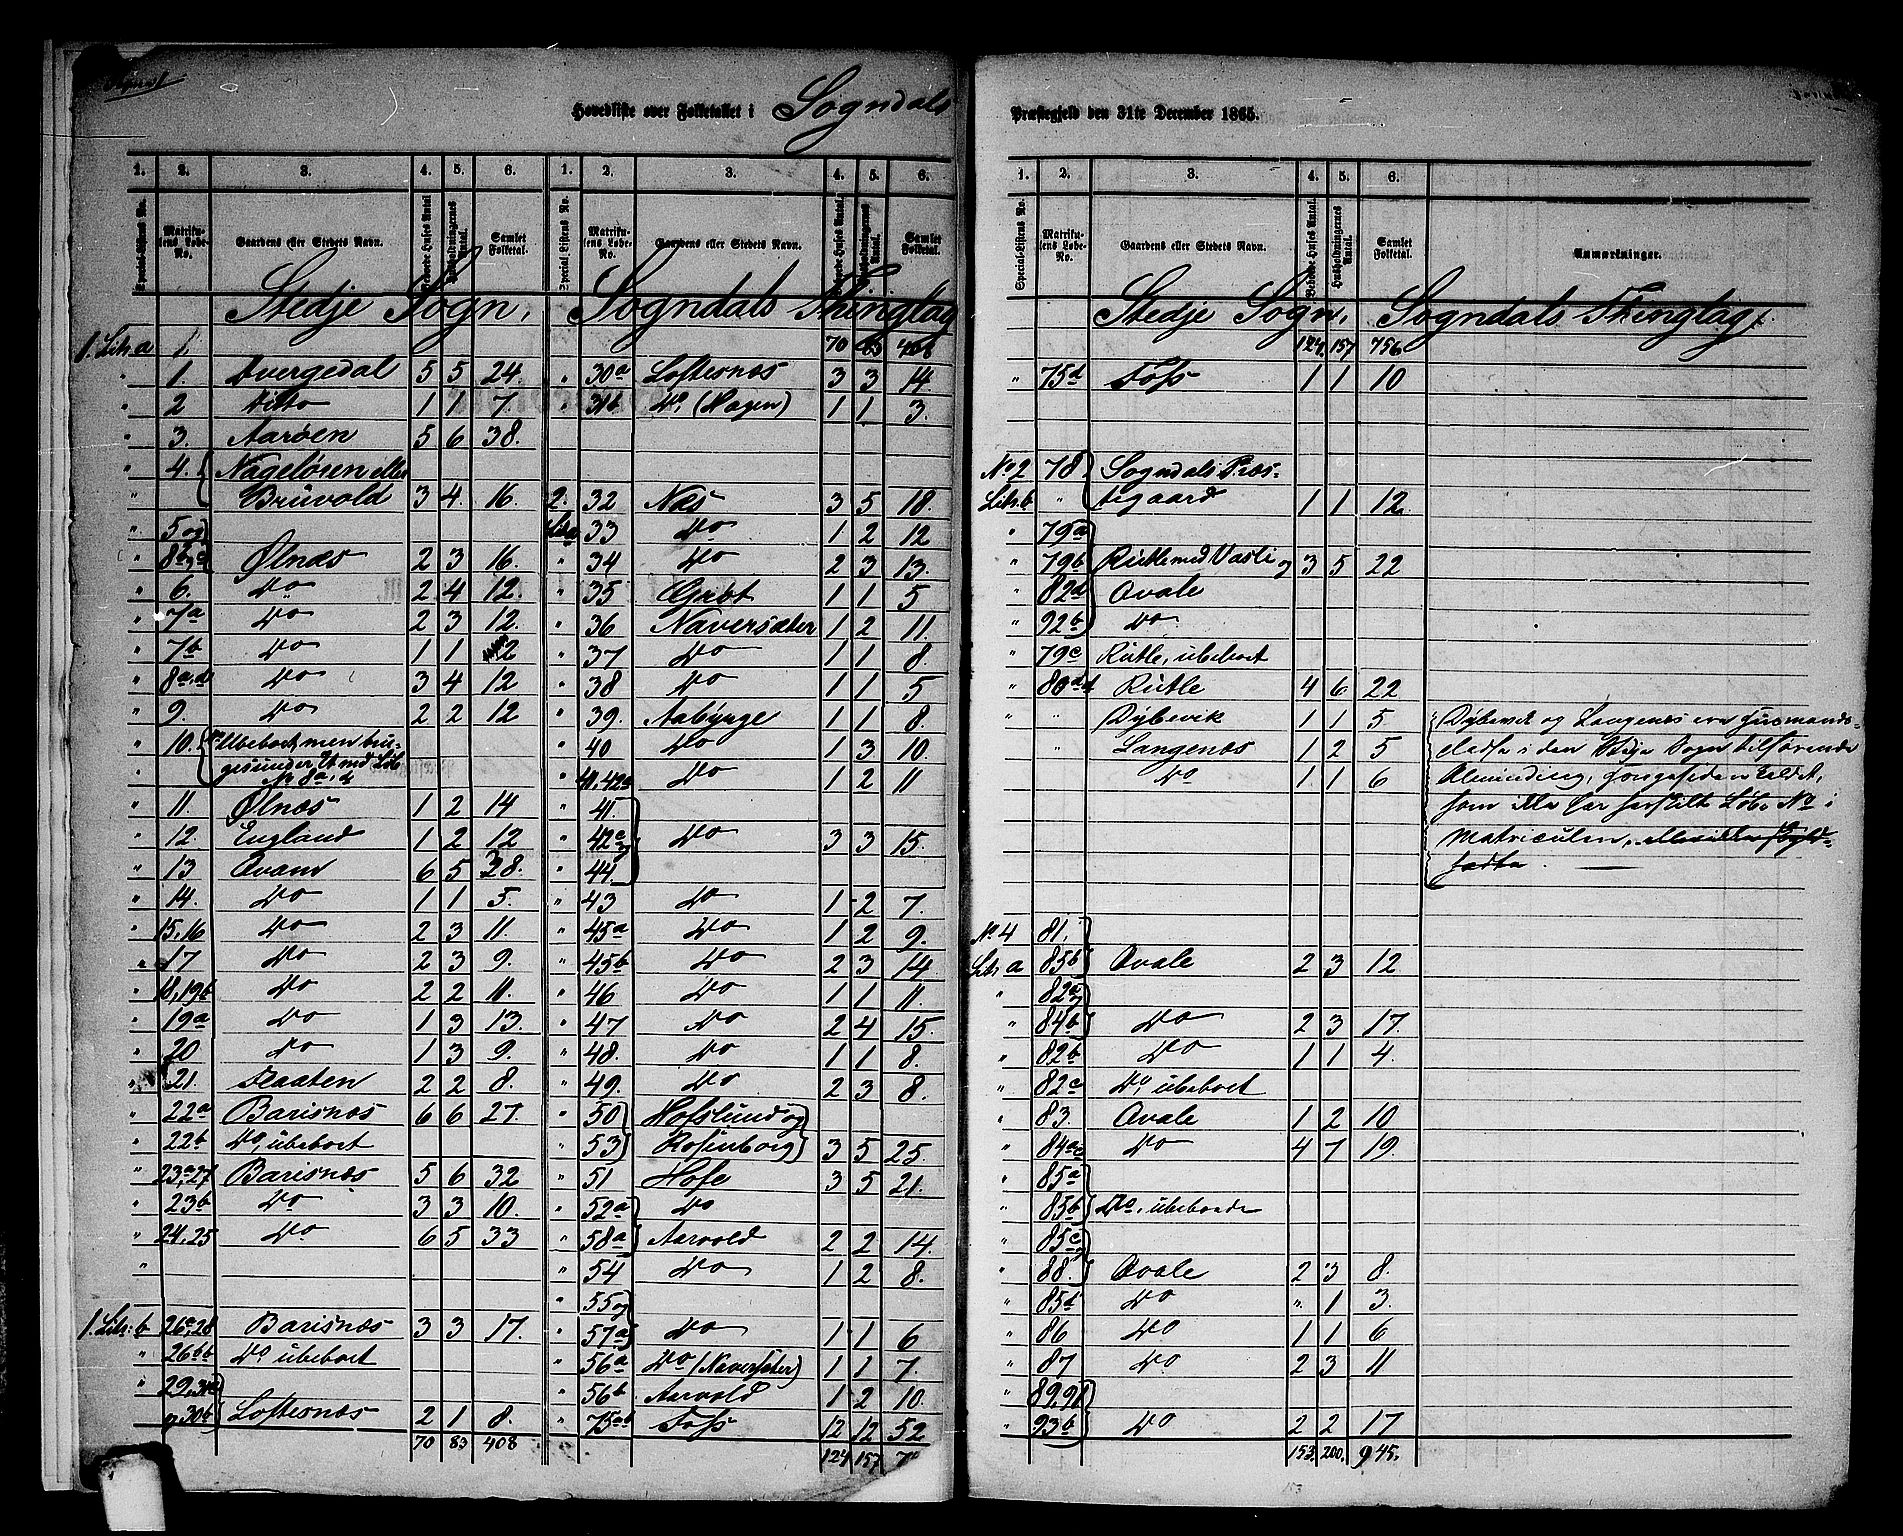 Hovedliste over Folketallet i Sogndals
Præstegjeld den 31te December 1865.
1. 2. 3. 4. 5. 6. 1. 2. 3. 4. 5. 6.
Special-Listens No. Matrikulens Løbe-No. Gaardens eller Stedets Navn. Beboede Huses Antal Husholdningernes Antal. Samlet Folketal. Special Listens No. Matrikulens Løbe-No. Gaardens eller Stedets Navn. Beboede Huses Antal. Husholdningernes Antal. Samlet Folketal.
Stedje Sogn, Sogndals Thinglag
1. Litr. a 1.
" 1. Dvergedal 5 5 24.
" 2 Ditto 1 1 7.
" 3. Aarøen 5 6 38.
" 4. Nageløren eller
" Bruvold 3 4. 16.
" 5 og
" 8b,c Ølnæs 2 3 16.
" 6. Do 2 4 12.
" 7a Do 2 3 12.
" 7b Do 1 1 2
" 8a,d Do 3 4 12
" 9. Do 2 2 12
" 10. Ubeboet, men bru-
ges under
No 8a, d
" 11. Ølnæs 1 2 14
" 12. England 1 2 12
" 13 Qvam 6 5 38.
" 14. Do 1 1 5.
" 15,16 Do 2 3 11.
" 17 Do 2 3 9.
" 18,19b Do 2 2 11.
" 19a Do 1 3 13.
" 20 Do 1 3 9.
" 21. Flaaten 2 2 8.
" 22a Barsnæs 6 6 27.
" 22b Do, ubeboet
" 23a,27 Barsnæs 5 6 32
" 23b Do 3 3 10.
" 24,25 Do 6 5 33
"
1. Litr: b 26a,28 Barsnæs 3 3 17.
" 26b Do ubeboet
" 29,31a
" 30b Loftesnæs 2 1 8.
70 83 408
70 83 408
" 30a Loftesnæs 3 3 14.
" 31b Do, (Hagen) 1 1 3.
2. 32 Næs 3 5 18.
Litr a 33 Do 1 2 12
" 34 Do 2 3 13.
" 35 Gribt 1 1 5
" 36 Naversæter 1 2 11.
" 37 Do 1 1 8.
" 38 Do 1 1 5
" 39. Aabynge 1 1 8.
" 40 Do 1 3 10.
" 41, 42a Do 1 2 11
" 41.
" 42c og Do 3 3 15.
" 44
" 43 Do 1 2 7.
" 45a Do 1 2 9.
" 45b Do 2 3 14
" 46 Do 1 1 11.
" 47 Do 2 4 15.
" 48. Do 1 1 8.
" 49. Do 2 3 8.
" 50 Hofslund og
" 53 Rosenborg 3 5 25.
" 51 Hofe 3 5 21.
" 52a Do
" 58a Aarvold 2 2 14.
" 54 Do 1 2 8.
" 55 og
" 57a Do 1 1 6
" 56a Do (Naversæter) 1 1 7.
" 56b Aarvold 1 2 10.
" 75ab Foss 12 12 52
124 157
1. 2. 3. 4. 5. 6.
Special-Listens No. Matrikulens Løbe-No. Gaardens eller Stedets Navn. Beboede Huses Antal. Husholdningernes Antal. Samlet Folketal. Anmærkninger.
Stedje Sogn, Sogndals Thinglag.
124. 157 756
" 75d Foss 1 1 10
No 2 78 Sogndals Præs-
Litr. b " tegaard 1 1 12.
" 79a
" 79b Rutle med Vasli og 3 5 22
" 82d Qvale
" 92b Do
" 79c Rutle, ubeboet
" 80 Rutle 4 6 22
" " Dybevik 1 1 5 Dybevik og Langenæs ere Husmands-
" Langenæs 1 2 5 pladse i den Stedje Sogn tilhørende
Do 1 1 6 Alminding,
som ikke har særskilt Løbe No i
Matriculen,
No 4 81.
Litr a 85b Qvale 2 3 12
" 82a og
" 84b Do 2 3 17.
" 82b Do 1 1 4.
" 82c Do, ubeboet
" 83. Qvale 1 2 10
" 84a Do 4 7 19.
" 85a
" 85b Do, ubeboede
" 85c og
" 88. Qvale 2 3 8.
" 85d Do " 1 3.
" 86 Do 1 1 6
" 87 Do 2 3 11
" 89,91
" 93b Do 2 2 17
153. 200. 945.